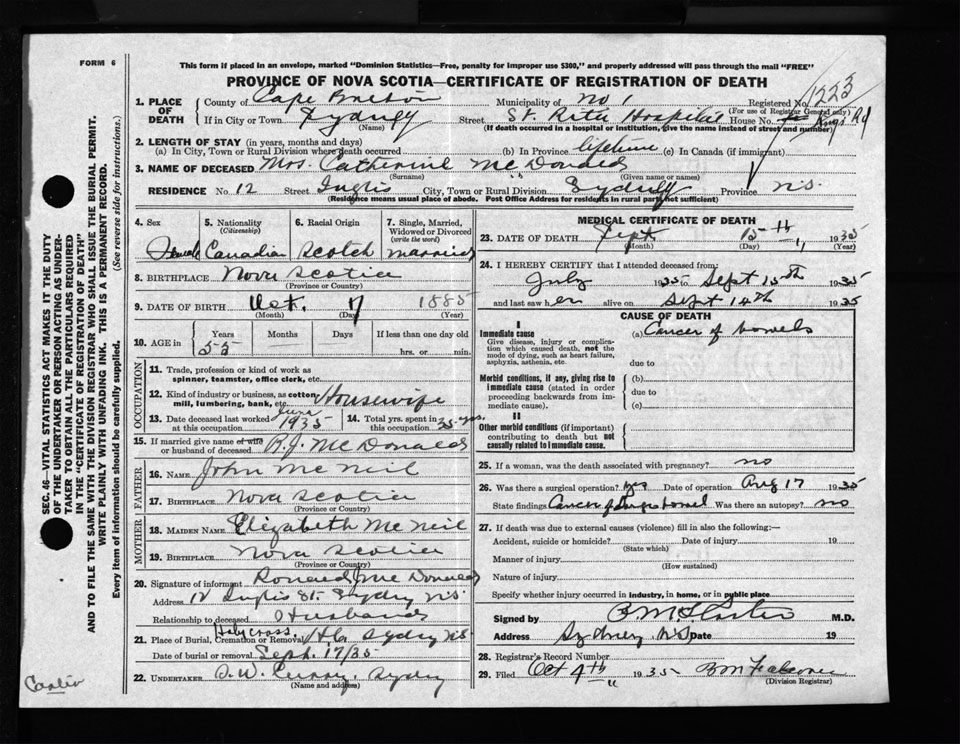 FORM 6
This form if placed in an envelope, marked "Dominion Statistics—Free, penalty for improper use $300," and properly addressed will pass through the mail "FREE"
PROVINCE OF NOVA SCOTIA—CERTIFICATE OF REGISTRATION OF DEATH
1. PLACE OF DEATH
County of Cape Breton Municipality of No 1 Registered No. 1223
(For use of Registrar General only)
If in City or Town Sydney Street St. Rita Hospital House No. Kings Rd
(Name) (If death occurred in a hospital or institution, give the name instead of street and number)
2. LENGTH OF STAY (in years, months and days)
(a) In City, Town or Rural Division where death occurred (b) In Province lifetime (c) In Canada (if immigrant)
3. NAME OF DECEASED Mrs. Catherine McDonald
(Surname) (Given name or names)
RESIDENCE No. 12 Street Inglis City, Town or Rural Division Sydney Province N.S.
(Residence means usual place of abode. Post Office Address for residents in rural parts not sufficient)
4. Sex 5. Nationality (Citizenship) 6. Racial Origin 7. Single, Married, Widowed or Divorced (write the word)
Female Canadian Scotch married
8. BIRTHPLACE Nova Scotia
(Province or Country)
9. DATE OF BIRTH Oct. 17 1885
(Month) (Day) (Year)
10. AGE in Years Months Days If less than one day old
55 hrs. or min.
OCCUPATION
11. Trade, profession or kind of work as spinner, teamster, office clerk, etc.
12. Kind of industry or business, as cotton mill, lumbering, bank, etc. Housewife
13. Date deceased last worked at this occupation June 1935 14. Total yrs. spent in this occupation 35 yrs.
15. If married give name of wife or husband of deceased R.J. McDonald
FATHER
16. NAME John McNeil
17. BIRTHPLACE Nova Scotia
(Province or Country)
MOTHER
18. MAIDEN NAME Elizabeth McNeil
19. BIRTHPLACE Nova Scotia
(Province or Country)
20. Signature of informant Ronald J McDonald
Address 12 Inglis St. Sydney N.S.
Relationship to deceased Husband
21. Place of Burial, Cremation or Removal Holy Cross, Sydney N.S.
Date of burial or removal Sept. 17/35
22. UNDERTAKER Curry, Sydney
(Name and address)
MEDICAL CERTIFICATE OF DEATH
23. DATE OF DEATH Sept 15th 1935
(Month) (Day) (Year)
24. I HEREBY CERTIFY that I attended deceased from
July 1935 to Sept 15th 1935
and last saw her alive on Sept 14th 1935
CAUSE OF DEATH
I
Immediate cause (a) Cancer of bowels
Give disease, injury or complication which caused death, not the mode of dying, such as heart failure, asphyxia, asthenia, etc.
due to
Morbid conditions, if any, giving rise to immediate cause (stated in order proceeding backwards from immediate cause).
(b)
due to
(c)
II
Other morbid conditions (if important) contributing to death but not causally related to immediate cause.
25. If a woman, was the death associated with pregnancy? no
26. Was there a surgical operation? yes Date of operation Aug 17 1935
State findings Cancer of bowel Was there an autopsy? no
27. If death was due to external causes (violence) fill in also the following:—
Accident, suicide or homicide? Date of injury 19
(State which)
Manner of injury
(How sustained)
Nature of injury
Specify whether injury occurred in industry, in home, or in public place
Signed by M.D.
Address Sydney N.S. Date 19
28. Registrar's Record Number
29. Filed Oct 4th 1935
(Division Registrar)
SEC. 46—VITAL STATISTICS ACT MAKES IT THE DUTY
OF THE UNDERTAKER OR PERSON ACTING AS UNDER-
TAKER TO OBTAIN ALL THE PARTICULARS REQUIRED
IN THE "CERTIFICATE OF REGISTRATION OF DEATH"
AND TO FILE THE SAME WITH THE DIVISION REGISTRAR WHO SHALL ISSUE THE BURIAL PERMIT.
WRITE PLAINLY WITH UNFADING INK. THIS IS A PERMANENT RECORD.
Every item of information should be carefully supplied. (See reverse side for instructions.)